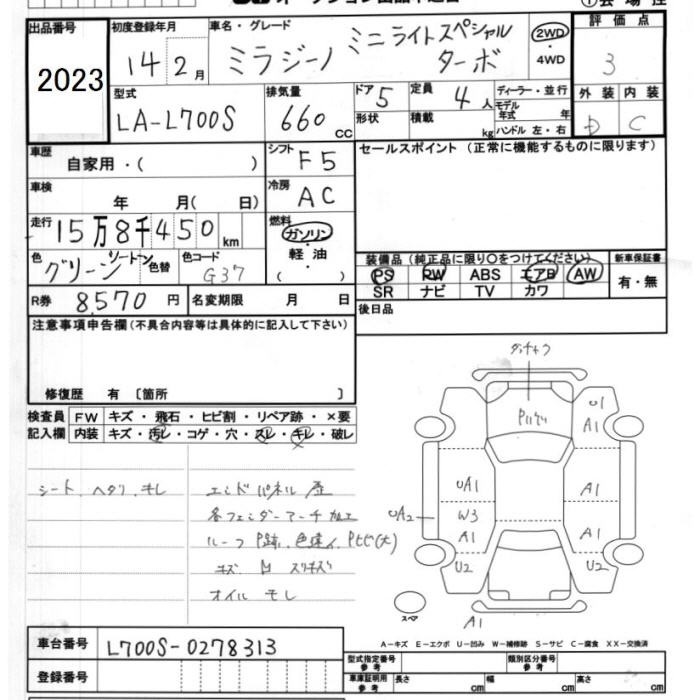 出品番号 初度登録年月 車名・グレード 評価点
2023 14年2月 ミラジーノ ミニライトスペシャル ターボ 2WD ・4WD 3
型式 排気量 ドア 5 定員 4人 ディーラー・並行 外装 内装
LA-L700S 660 CC 形状 積載 kg モデル年式 年 D C
ハンドル 左・右
車歴 自家用・( ) シフト F5 セールスポイント (正常に機能するものに限ります)
車検 年 月( 日) 冷房 AC
走行 15万8千450km 燃料 ガソリン ・軽油 ( )
色 グリーン ツートーン 色替 色コード G37
装備品 (純正品に限り○をつけてください) 新車保証書
PS PW ABS エアB AW 有・無
SR ナビ TV カワ
R券 8,570円 名変期限 月 日 後日品
注意事項申告欄(不具合内容等は具体的に記入して下さい)
修復歴 有 〔箇所 〕
検査員 FW キズ・飛石・ヒビ割・リペア跡・×要
記入欄 内装 キズ・汚レ・コゲ・穴・スレ・キレ・破レ
シート、ヘタリ、モレ
エンドパネル歪
各フェンダーアーチ加工
ルーフ P跡、色違イ、Pヒビ(大)
オイル モレ
U1
A1
UA1 A1
UA2 W3 A1
A1
U2 U2
スペア
A1
A-キズ E-エクボ U-凹み W-補修跡 S-サビ C-腐食 XX-交換済
車台番号 L700S-0278313
登録番号
型式指定番号 参考 類別区分番号 参考
車庫証明用 参考 長さ cm 幅 cm 高さ cm